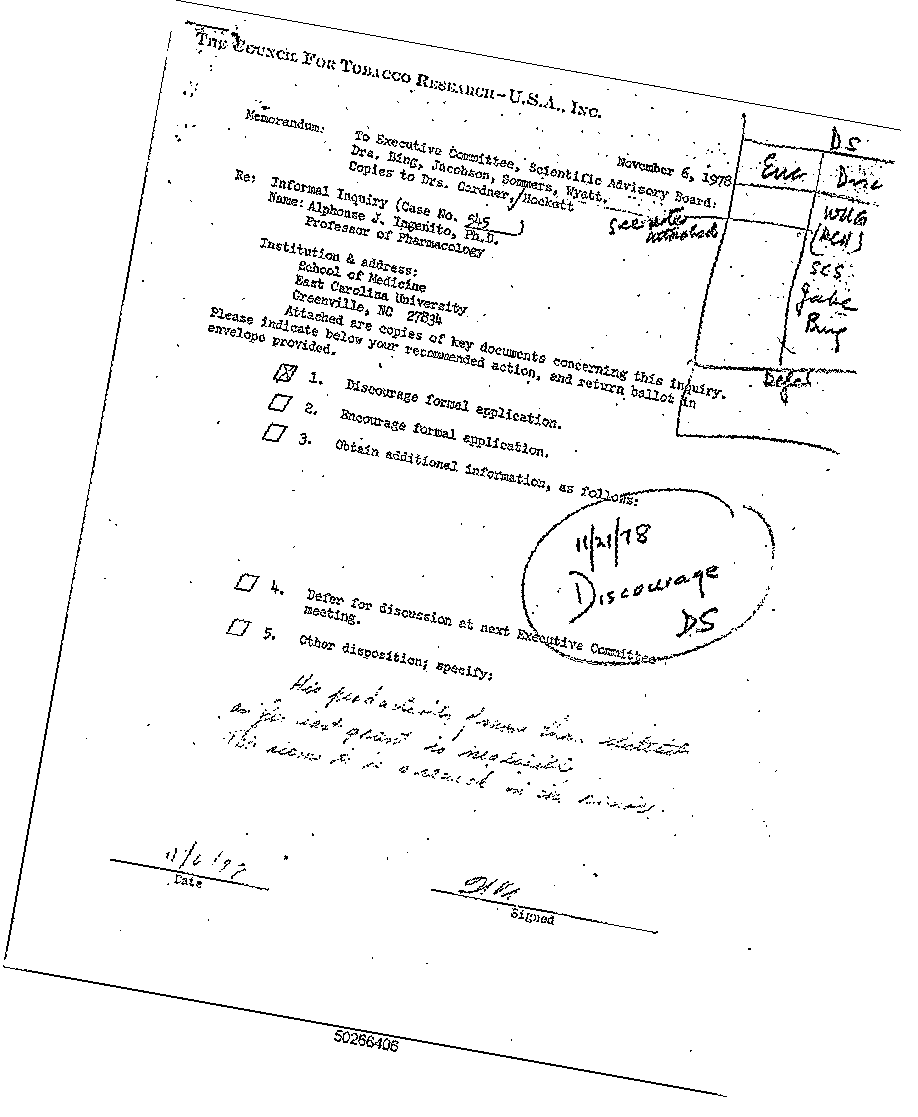 THE COUNCIL FOR TOBACCO RESEARCH-U.S.A., INC.
Memorandum:
November 6, 1978
To Executive Committee, Scientific Advisory Board:
Drs. Bing, Jacobson, Sommers, Wyatt,
Copies to Drs. Gardner, Hockett
see notes
Re: Informal Inquiry (Case No. 545 )
Name: Alphonse J. Ingenito, Ph.D.
Professor of Pharmacology
Institution & address:
School of Medicine
East Carolina University
Greenville, NC 27834
Attached are copies of key documents concerning this inquiry.
Please indicate below your recommended action, and return ballot in
envelope provided.
1. Discourage formal application.
2. Encourage formal application.
3. Obtain additional information, as follows:
4. Defer for discussion at next Executive Committee
meeting.
5. Other disposition; specify:
DS
Enc. Disc
WUG
(RCH)
SCS
Jake
Bing
Defer
11/21/78
Discourage
DS
His
last grant is
in the
Date
Signed
50266406